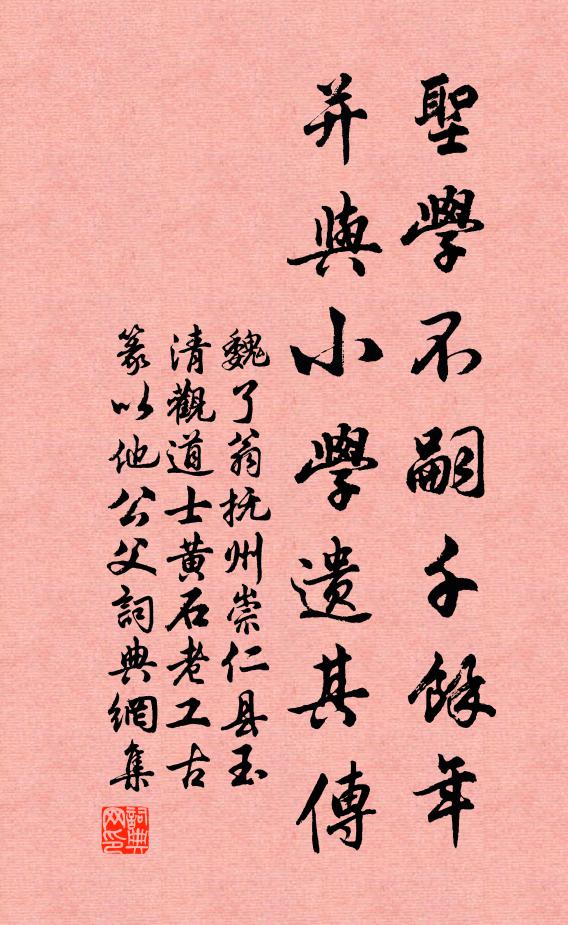 聖學不嗣千餘年
并與小學遺其傳
魏了翁抚州崇仁县玉
清觀道士黄石老工古
篆以他公父詞典網集
詞典网印